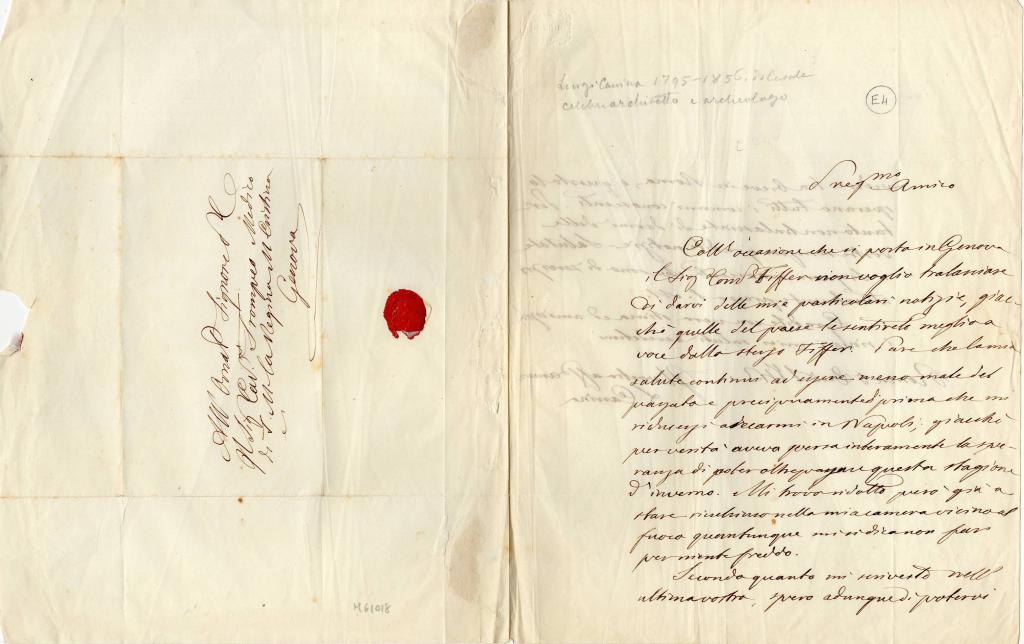 All' Onor.do Signore
Il Sig. Cav.e Trompeo Medico
di S. M. la Regina M. Cristina
Genova
M61018
Luigi Canina 1795-1856. di Casale
celebre architetto e archeologo
E4
Preg.mo
Amico
Coll' occasione che si porta in Genova
il Sig. Fiffer non voglio tralasciare
di darvi delle mie particolari notizie, giac-
chè quelle del paese le sentirete meglio a
voce dallo stesso Fiffer. Pare che la mia
salute continui ad essere meno male del
passato e precisamente di prima che mi
riducessi a recarmi in Napoli; giacchè
per verità aveva persa interamente la spe-
ranza di poter oltrepassare questa stagione
d'inverno. Mi trovo ridotto però già a
stare rinchiuso nella mia camera vicino al
fuoco quantunque mi si dica non far
per niente freddo.
Secondo quanto mi scriveste nell'
ultima vostra, spero adunque di potervi